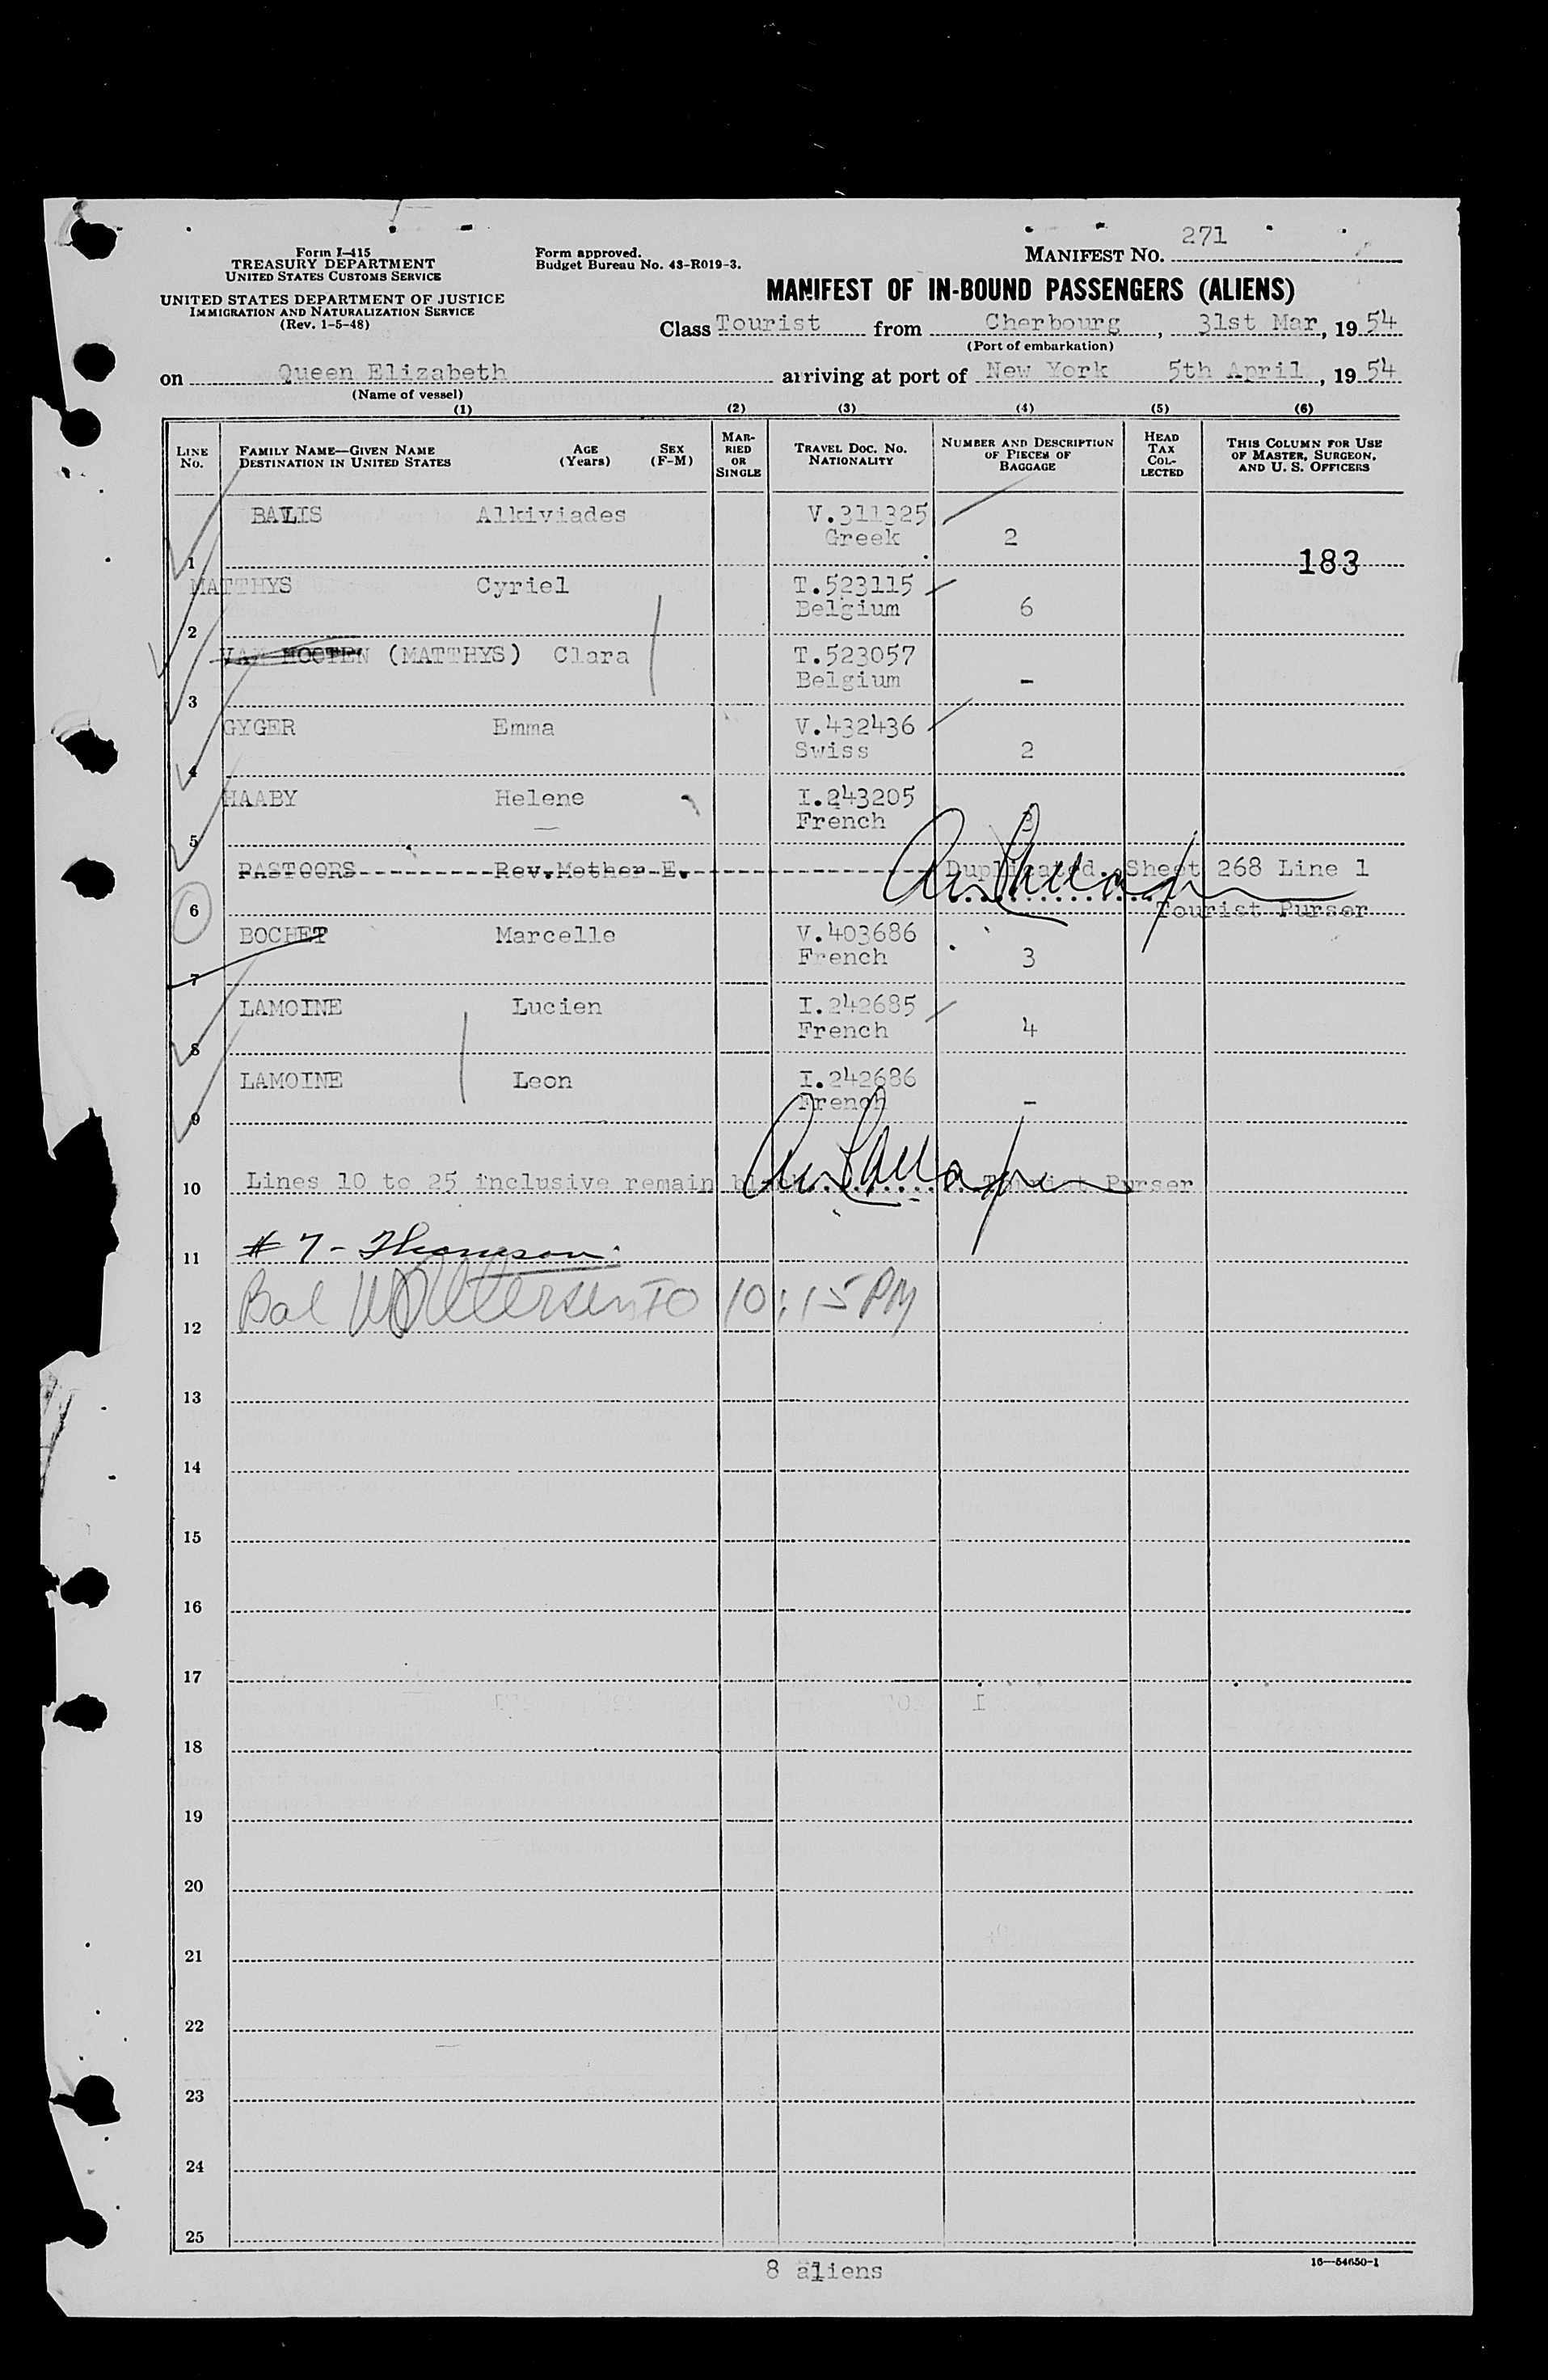 Form I-415
TREASURY DEPARTMENT
UNITED STATES CUSTOMS SERVICE
UNITED STATES DEPARTMENT OF JUSTICE
IMMIGRATION AND NATURALIZATION SERVICE
(Rev. 1-5-48)
Form approved.
Budget Bureau No. 43-R019-3.
MANIFEST NO. 271
MANIFEST OF IN-BOUND PASSENGERS (ALIENS)
Class Tourist from Cherbourg, 31st Mar, 1954
(Port of embarkation)
on Queen Elizabeth arriving at port of New York 5th April, 1954
(Name of vessel)
(1) (2) (3) (4) (5) (6)
LINE No. FAMILY NAME—GIVEN NAME DESTINATION IN UNITED STATES AGE (Years) SEX (F-M) MARRIED OR SINGLE TRAVEL DOC. NO. NATIONALITY NUMBER AND DESCRIPTION OF PIECES OF BAGGAGE HEAD TAX COLLECTED THIS COLUMN FOR USE OF MASTER, SURGEON, AND U. S. OFFICERS
BALIS Alkiviades V.311325
1 Greek 2 183
MATTHYS Cyriel T.523115
2 Belgium 6
VAN HOOTEN (MATTHYS) Clara T.523057
3 Belgium -
GYGER Emma V.432436
4 Swiss 2
HAABY Helene I.243205
5 French 3
PASTOORS Rev.Mother E. Duplicated. Sheet 268 Line 1
6 Tourist Purser
BOCHET Marcelle V.403686
7 French 3
LAMOINE Lucien I.242685
8 French 4
LAMOINE Leon I.242686
9 French -
10 Lines 10 to 25 inclusive remain Tourist Purser
11 # 7 - Thomson.
12 Bal 10:15 PM
13
14
15
16
17
18
19
20
21
22
23
24
25
8 aliens
16—54650-1